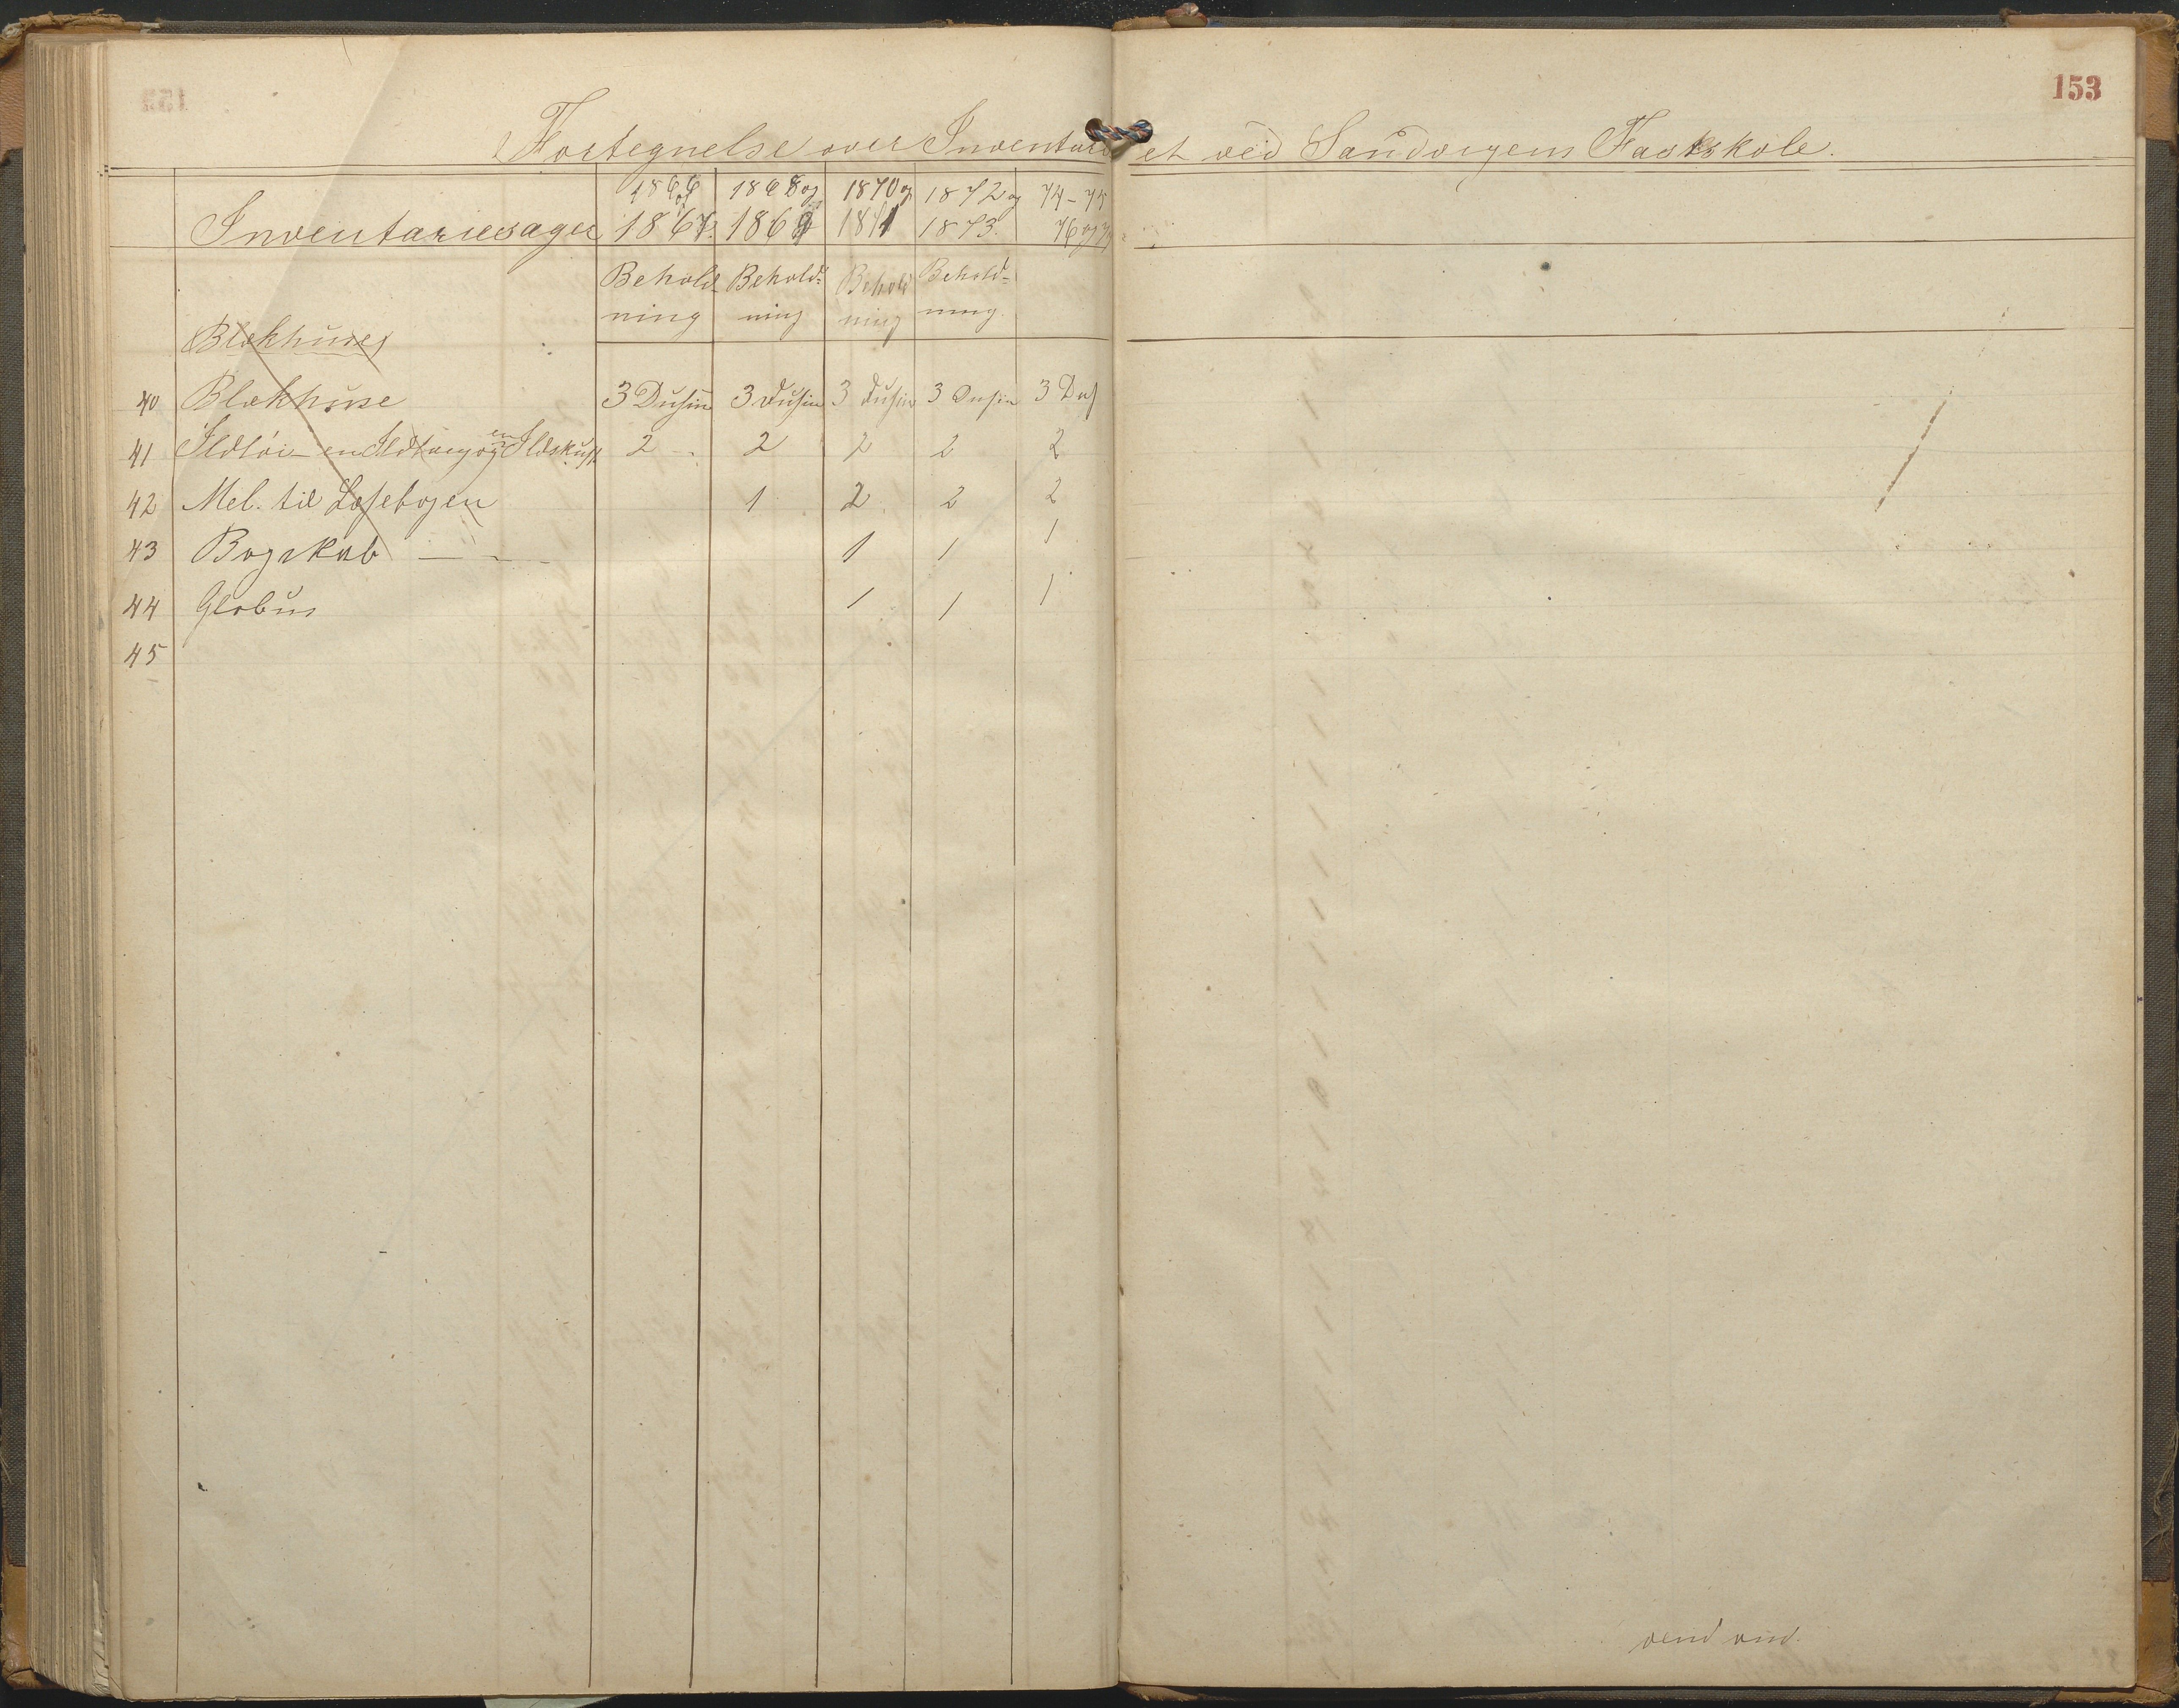 153
Fortegnelse over Inventariet ved Sandvigens Fastskole.
Inventariesager 1866 og 1867. 1868 og 1869 1870 og 1871 1872 og 1873. 74-75 76 og 77
Behold- ning Behold- ning Behold ning Behold- ning
Blækhuses
40 Blækhuse 3 Dusin 3 Dusin 3 Dusin 3 Dusin 3 Dus
41 Ildtøi - en Ildtang og en Ildskuff 2 2 2 2 2
42 Mel. til Læsebogen 1 2 2 2
43 Bogskab 1 1 1
44 Globus 1 1 1
45
vend om.